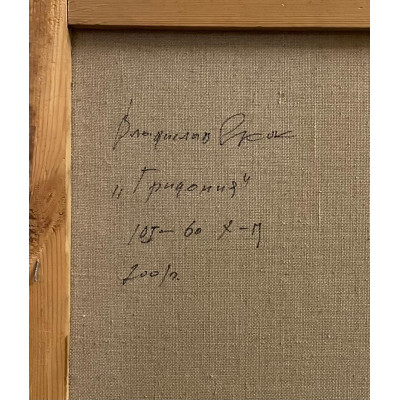 Владислав
„Гридония"
105-60 х-м
2001г.